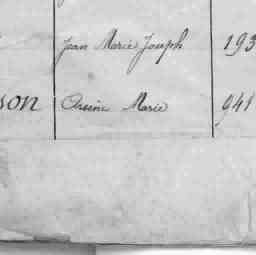 Jean Marie Joseph 193
son Arsène Marie 941